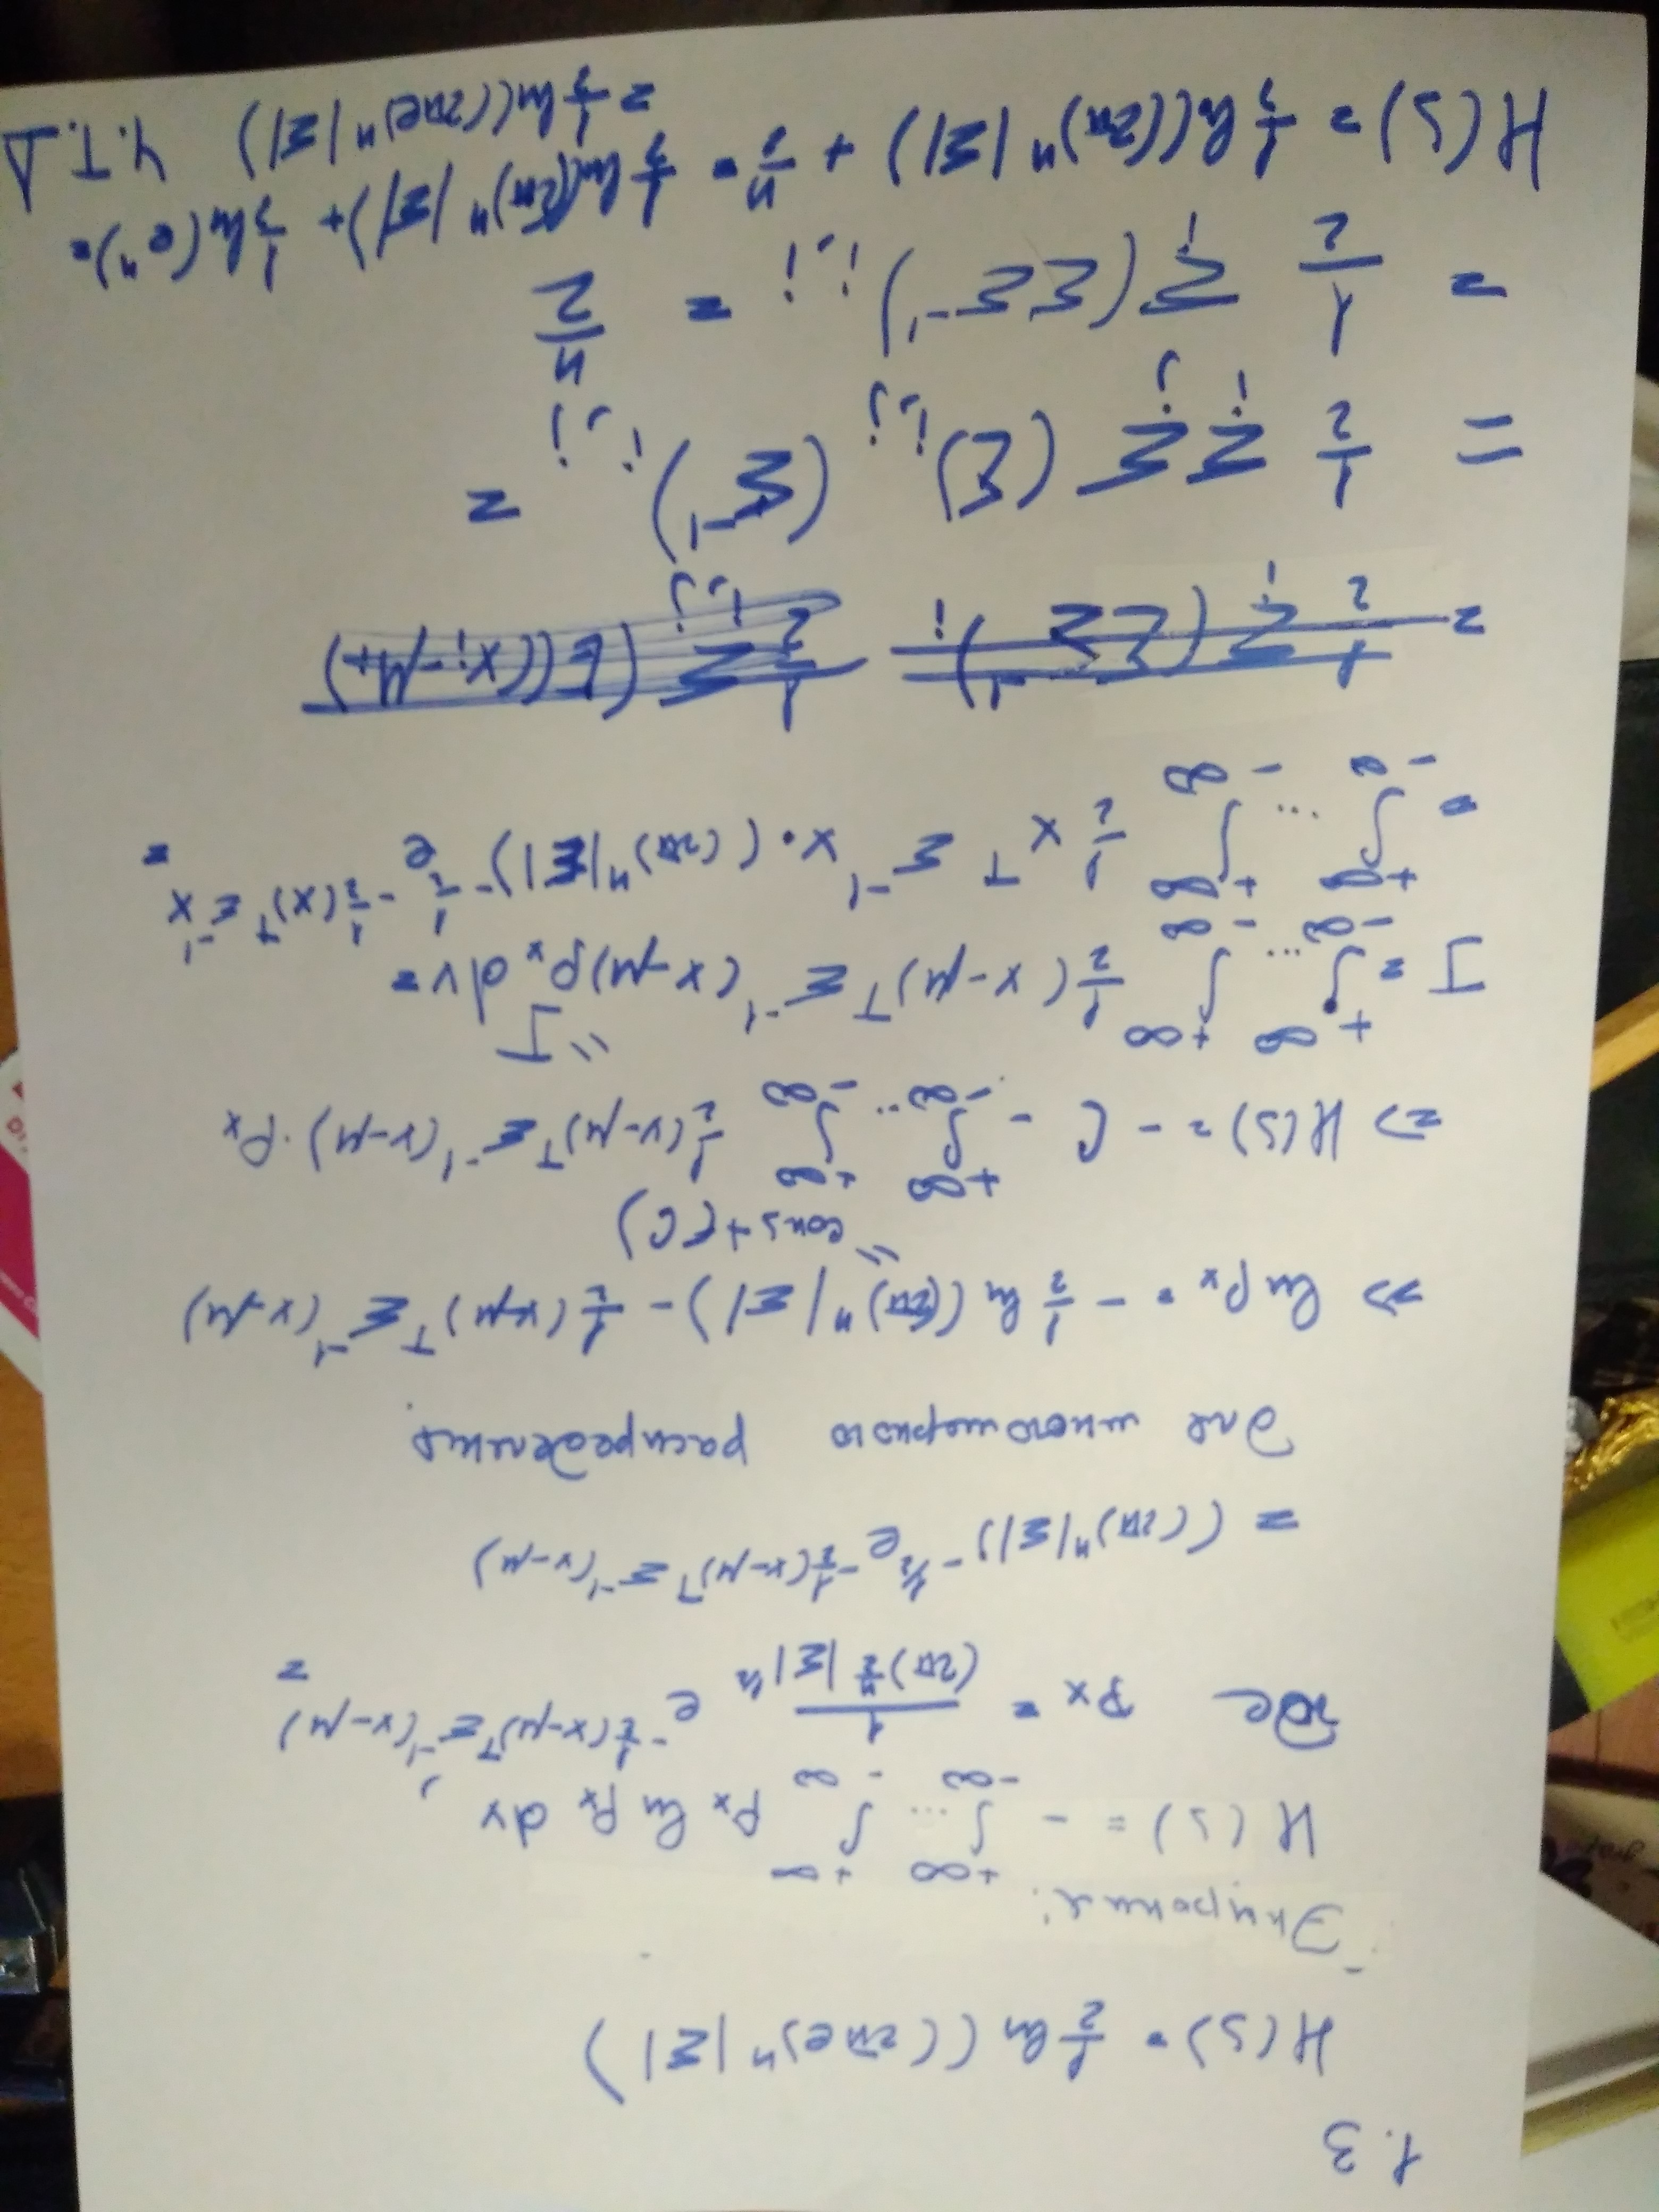 1.3
H(S) = 1/2 ln((2πe)^n |Σ|)
Энтропия:
H(S) = - ∫_{-∞}^{+∞} ... ∫_{-∞}^{+∞} p_x ln p_x dx,
где p_x = 1/((2π)^{n/2} |Σ|^{1/2}) e^{-1/2(x-μ)^T Σ^{-1}(x-μ)} =
= ((2π)^n |Σ|)^{-1/2} e^{-1/2(x-μ)^T Σ^{-1}(x-μ)}
для многомерного распределения.
=> ln p_x = - 1/2 ln((2π)^n |Σ|) - 1/2 (x-μ)^T Σ^{-1} (x-μ)
" const (C)
=> H(S) = - C - ∫_{-∞}^{+∞} .. ∫_{-∞}^{+∞} 1/2 (x-μ)^T Σ^{-1} (x-μ) · p_x
" J
J = ∫_{-∞}^{+∞} ... ∫_{-∞}^{+∞} 1/2 (x-μ)^T Σ^{-1} (x-μ) p_x dx =
= ∫_{-∞}^{+∞} ... ∫_{-∞}^{+∞} 1/2 x^T Σ^{-1} x · ((2π)^n |Σ|)^{-1/2} e^{-1/2(x)^T Σ^{-1} x} =
= 1/2 Σ_i (ΣΣ^{-1})_i 1/2 Σ_{i,j} (E((x_i-μ_i)
= 1/2 Σ_i Σ_j (Σ)_{i,j} (Σ^{-1})_{i,j} =
= 1/2 Σ_i (ΣΣ^{-1})_{i,i} = n/2
H(S) = 1/2 ln((2π)^n |Σ|) + n/2 = 1/2 ln((2π)^n |Σ|) + 1/2 ln(e^n) =
= 1/2 ln((2πe)^n |Σ|) Ч.Т.Д